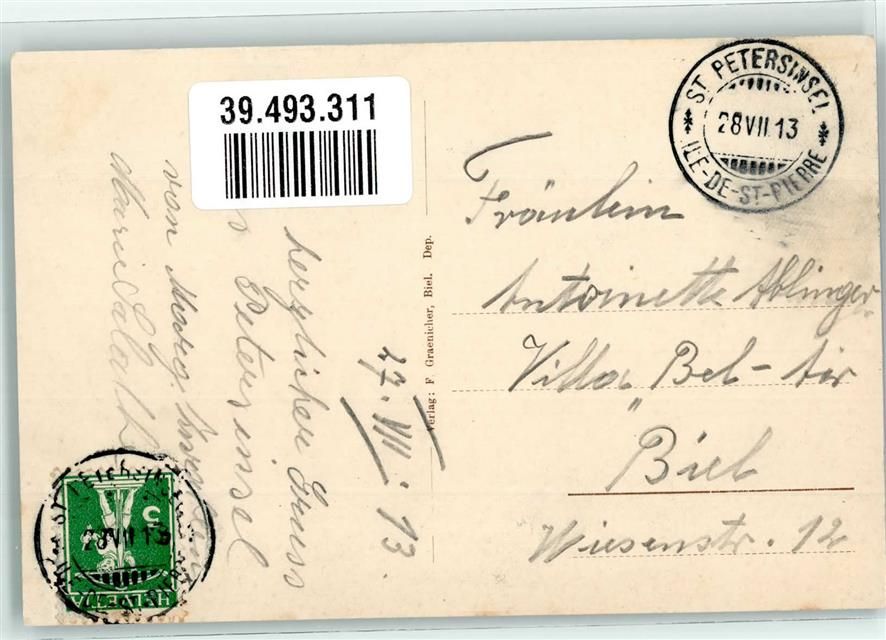 39.493.311
ST PETERSINSEL
28 VII 13
ILE-DE-ST-PIERRE
Fräulein
Antoinette Ablinger
Villa "Bel-Air
Biel
Wiesenstr. 12
Verlag: F Graenicher, Biel. Dep.
27. VII. 13
herzlicher Gruss
Petersinsel
von
28 VII 13
5
HELVETIA